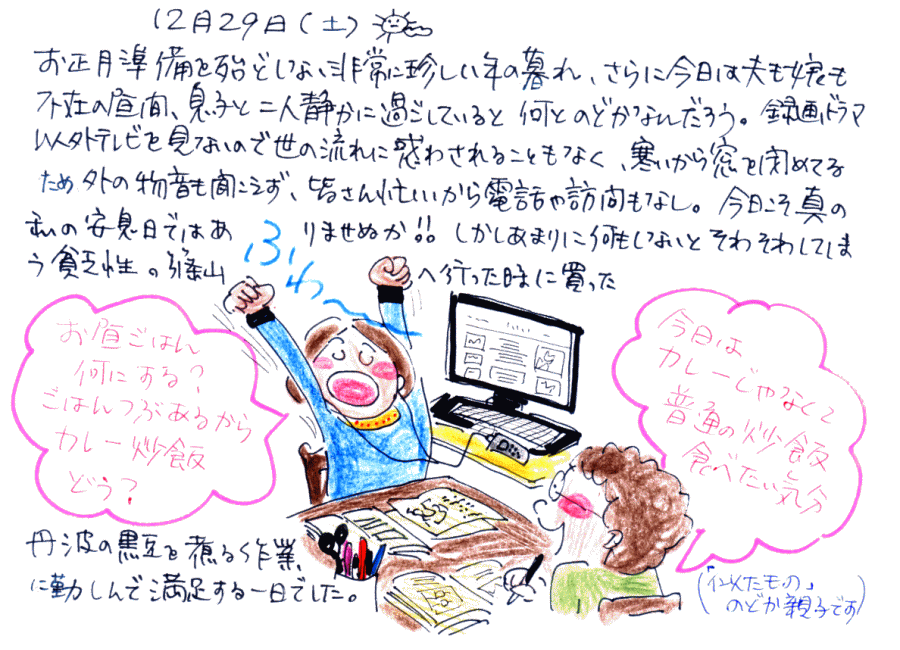 12月29日(土)
お正月準備を殆どしない非常に珍しい年の暮れ、さらに今日は夫も嫁も
不在の昼間、息子と二人静かに過ごしていると何とのどかなんだろう。録画ドラマ
以外テレビを見ないので世の流れに惑わされることもなく、寒いから窓を閉めてる
ため外の物音も聞こえず、皆さん忙しいから電話や訪問もなし。今日こそ真の
私の安息日ではありませぬか!!しかしあまりに何もしないとそわそわしてしま
う貧乏性の篠山へ行った時に買った
ふわ〜
お昼ごはん
何にする?
ごはんつぶあるから
カレー炒飯
どう?
今日は
カレーじゃなくて
普通の炒飯
食べたい気分
丹波の黒豆を煮る作業
に勤しんで満足する一日でした。
(「似たもの」
のどか親子です)